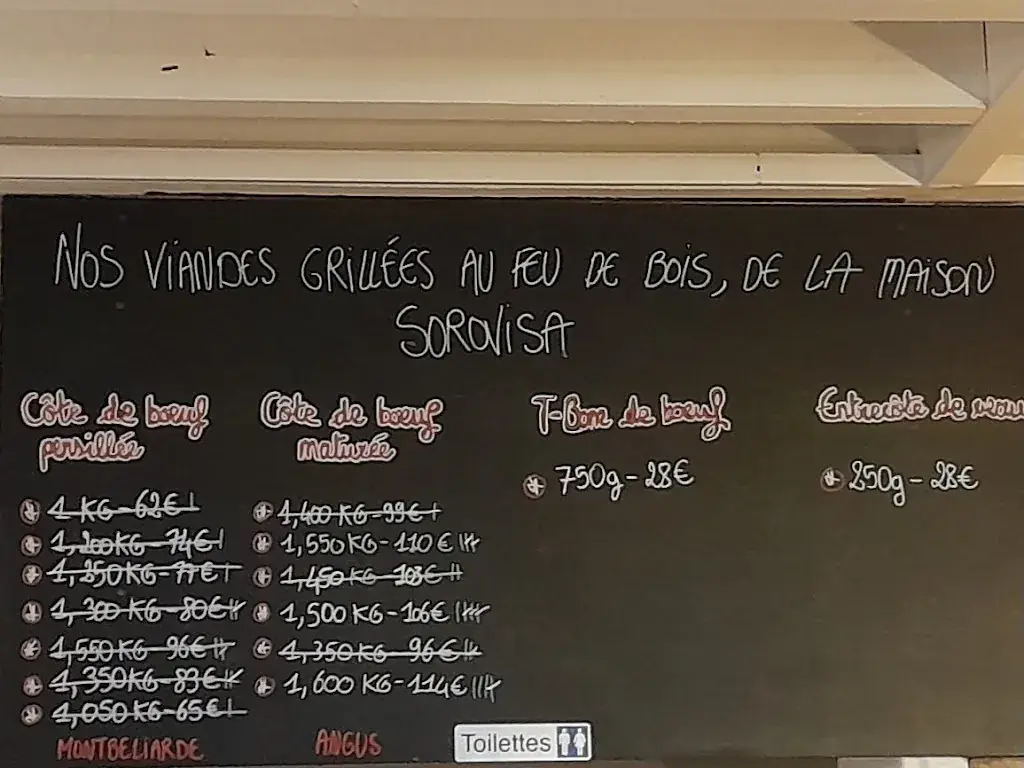 NOS VIANDES GRILLÉES AU FEU DE BOIS, DE LA MAISON
SOROVISA
Côte de boeuf
persillée
1 KG-62€
1,200KG-74€
1,250KG-77€
1,300 KG-80€
1,550 KG-96€
1,350KG-83€
1,050 KG-65€
MONTBELIARDE
Côte de boeuf
maturée
1,400 KG-99€
1,550 KG-110€
1,450 KG-103€
1,500 KG-106€
1,350 KG-96€
1,600 KG-114€
ANGUS
T-Bone de boeuf
750g-28€
Entrecôte de veau
250g-28€
Toilettes